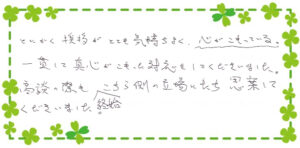 とにかく挨拶がとても気持ちよく、心がこもっている。
一貫して真心がこもった対応をしてくださいました。
商談の際も、こちら側の立場に立ち思案して
くださいました。終始